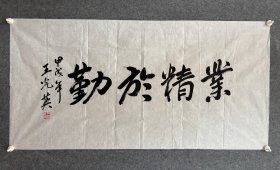 業精於勤
甲戌年
王光英